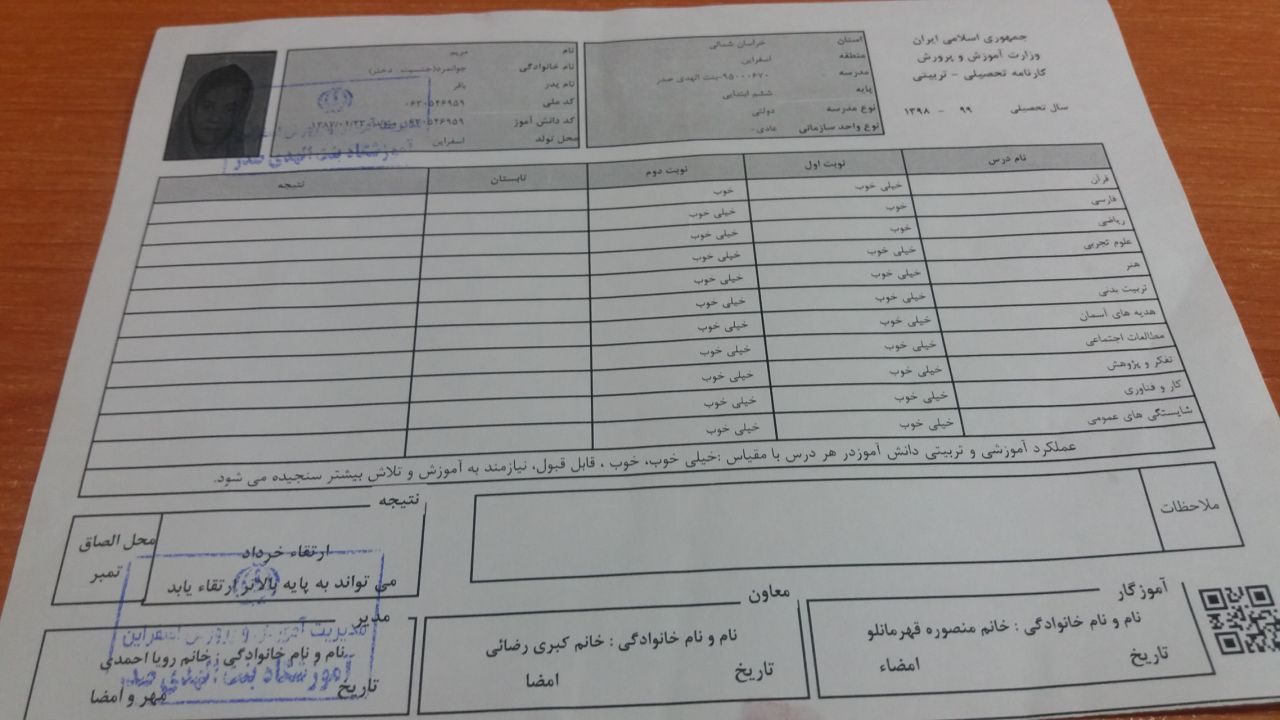 جمهوری اسلامی ایران
وزارت آموزش و پرورش
کارنامه تحصیلی - تربیتی
سال تحصیلی ۹۹ - ۱۳۹۸
استان خراسان شمالی
منطقه اسفراین
مدرسه ۹۵۰۰۰۶۷۰-بنت الهدی صدر
پایه ششم ابتدایی
نوع مدرسه دولتی
نوع واحد سازمانی عادی-
نام مریم
نام خانوادگی جوانمرد(جنسیت: دختر)
نام پدر باقر
کد ملی ۰۶۳۰۵۴۶۹۵۹
کد دانش آموز
محل تولد اسفراین
نام درس نوبت اول نوبت دوم تابستان نتیجه
قرآن خیلی خوب خوب
فارسی خوب خیلی خوب
ریاضی خوب خیلی خوب
علوم تجربی خیلی خوب خیلی خوب
هنر خیلی خوب خیلی خوب
تربیت بدنی خیلی خوب خیلی خوب
هدیه های آسمان خیلی خوب خیلی خوب
مطالعات اجتماعی خیلی خوب خیلی خوب
تفکر و پژوهش خیلی خوب خیلی خوب
کار و فناوری خیلی خوب خیلی خوب
شایستگی های عمومی خیلی خوب خیلی خوب
عملکرد آموزشی و تربیتی دانش آموزدر هر درس با مقیاس :خیلی خوب، خوب ، قابل قبول، نیازمند به آموزش و تلاش بیشتر سنجیده می شود.
ملاحظات
نتیجه
ارتقاء خرداد
می تواند به پایه بالاتر ارتقاء یابد
محل الصاق
تمبر
آموزگار
نام و نام خانوادگی : خانم منصوره قهرمانلو
تاریخ امضاء
معاون
نام و نام خانوادگی : خانم کبری رضائی
تاریخ امضا
مدیر
نام و نام خانوادگی : خانم رویا احمدی
تاریخ مهر و امضا
مدیریت آموزش و پرورش اسفراین
آموزشگاه بنت الهدی صدر